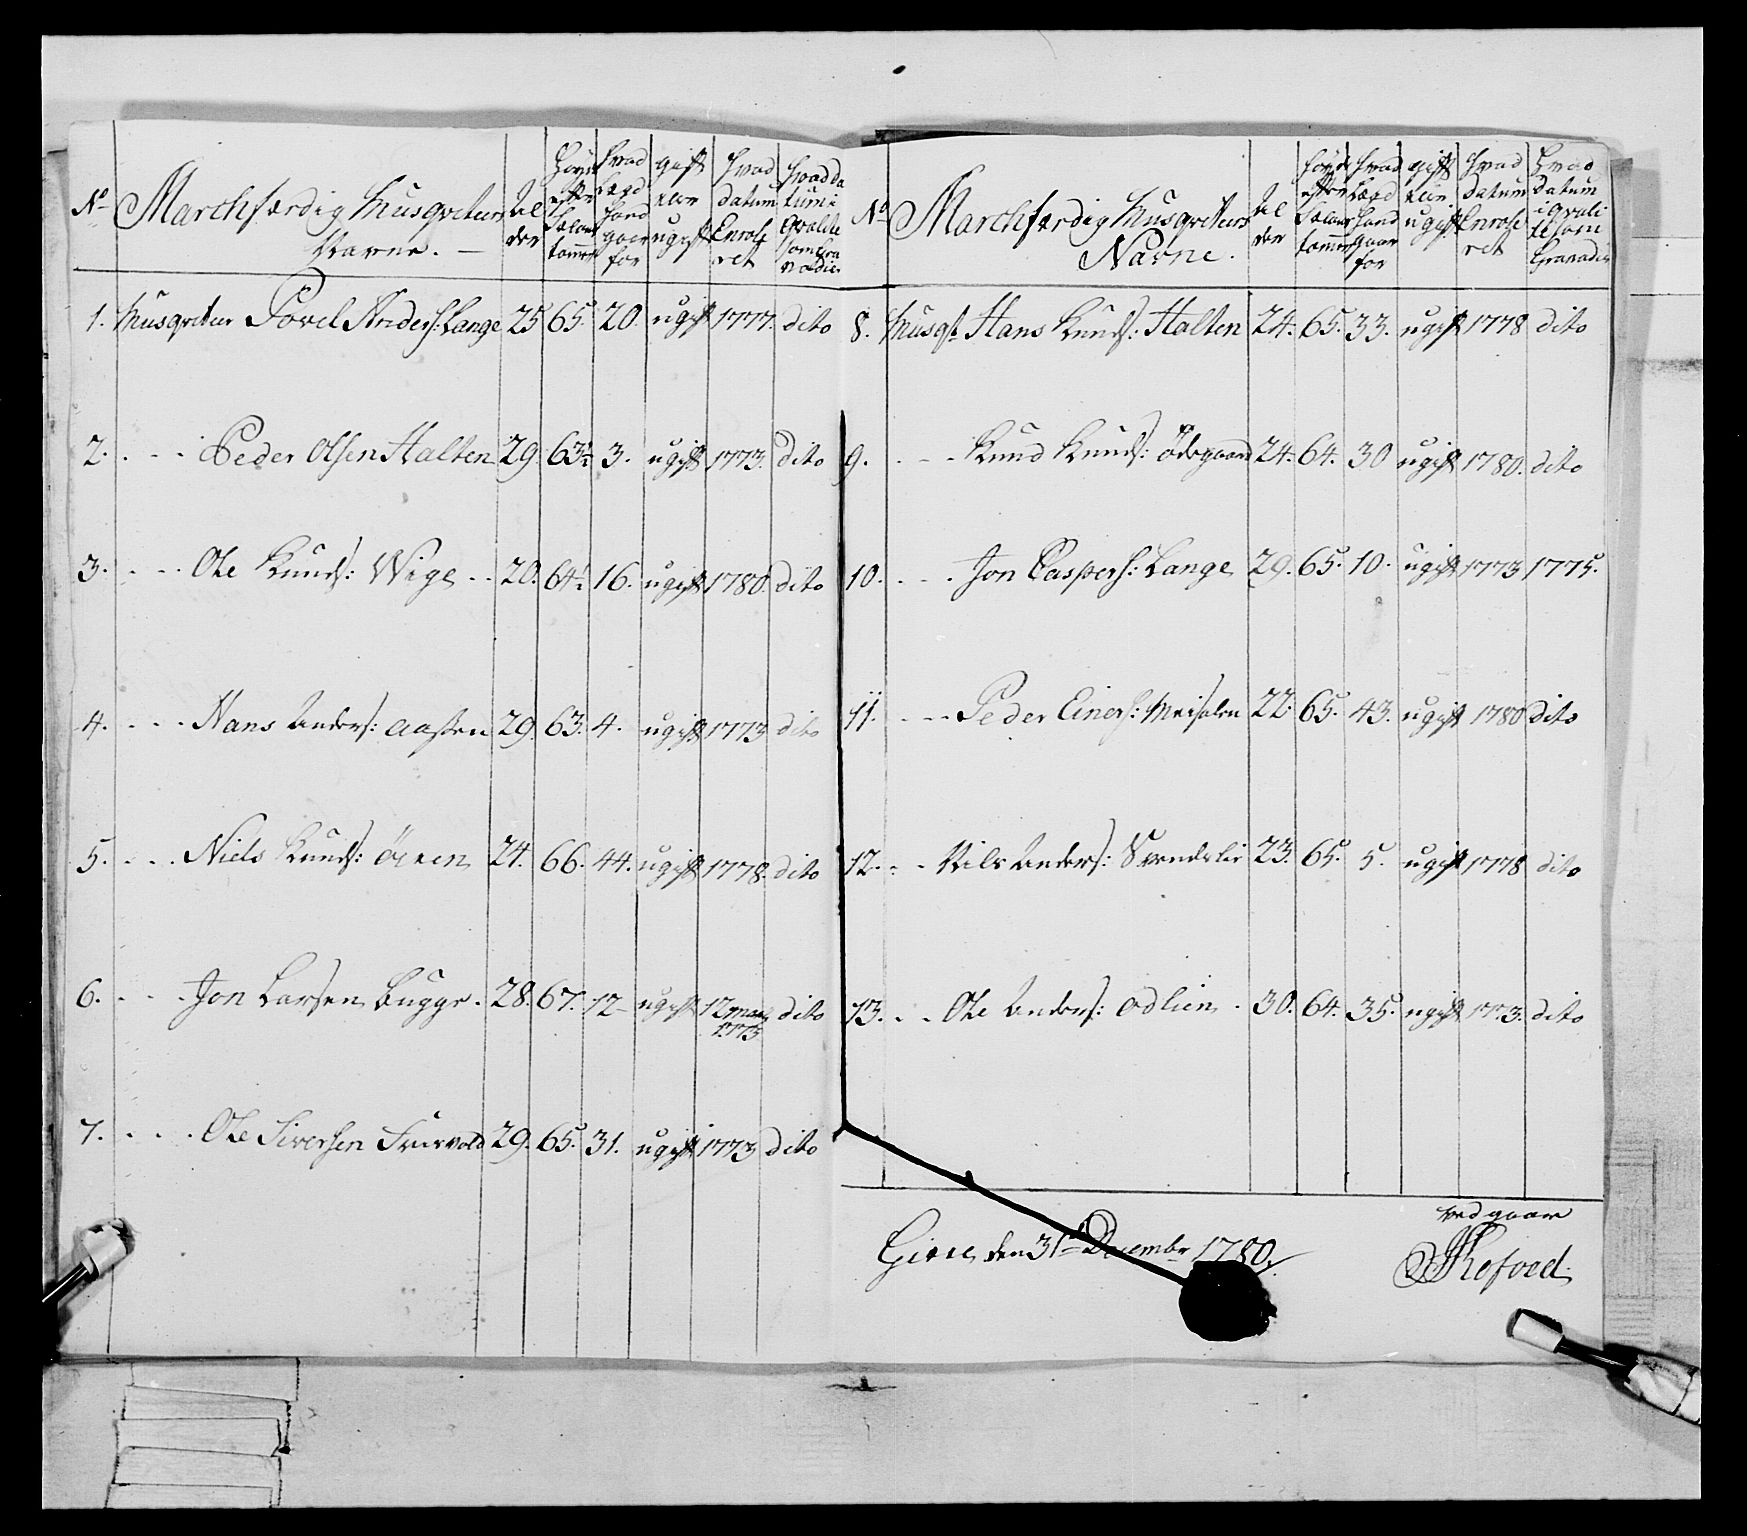 No Marchfærdig Musqveteur Navne. — Alder Høyde efter Sælandstommer Hvad Lægd Hand gaaer for gift eller ugift Hvad datum Enrolleret Hvad datum i Qvalitet som Granadier
1. Musqveteur Povel Anders: Lange 25 65. 20. ugift 1777. dito
2. . . . Peder Olsen Halten 29. 63½ 3. ugift 1773. dito
3. . . . Ole Knuds: Wige . . 20. 64½ 16. ugift 1780. dito
4. . . . Hans Anders: Aasten 29. 63. 4. ugift 1773 dito
5. . . . Niels Knuds: Öien 24. 66. 44. ugift 1778. dito
6. . . . Jon Larsen Bugge . 28. 67. 12 ugift 12 1773 dito
7. . . . Ole Siversen 29. 65. 31. ugift 1773 dito
No Marchfærdig Musqveteurs Navne. Alder Høyde efter Sælandstommer Hvad Lægd Hand gaar for gift eller ugift Hvad datum Enrolleret Hvad datum i Qvalite som Granadier
8. Musqt Hans Knuds: Halten 24. 65. 33. ugift 1778 dito
9. . . . Knud Knuds: Ödegaard 24. 64. 30 ugift 1780. dito
10. . . . Jon Caspers: Lange 29. 65. 10. ugift 1773 1775.
11. . . . Peder Einers: Meisalen 22. 65. 43. ugift 1780 dito
12. . . Nils Anders: 23. 65. 5. ugift 1778 dito
13. . . Ole Anders: Odlien . 30. 64. 35. ugift 1773. dito
vedgaaer
den 31te Decembr 1780.
Kofoed.